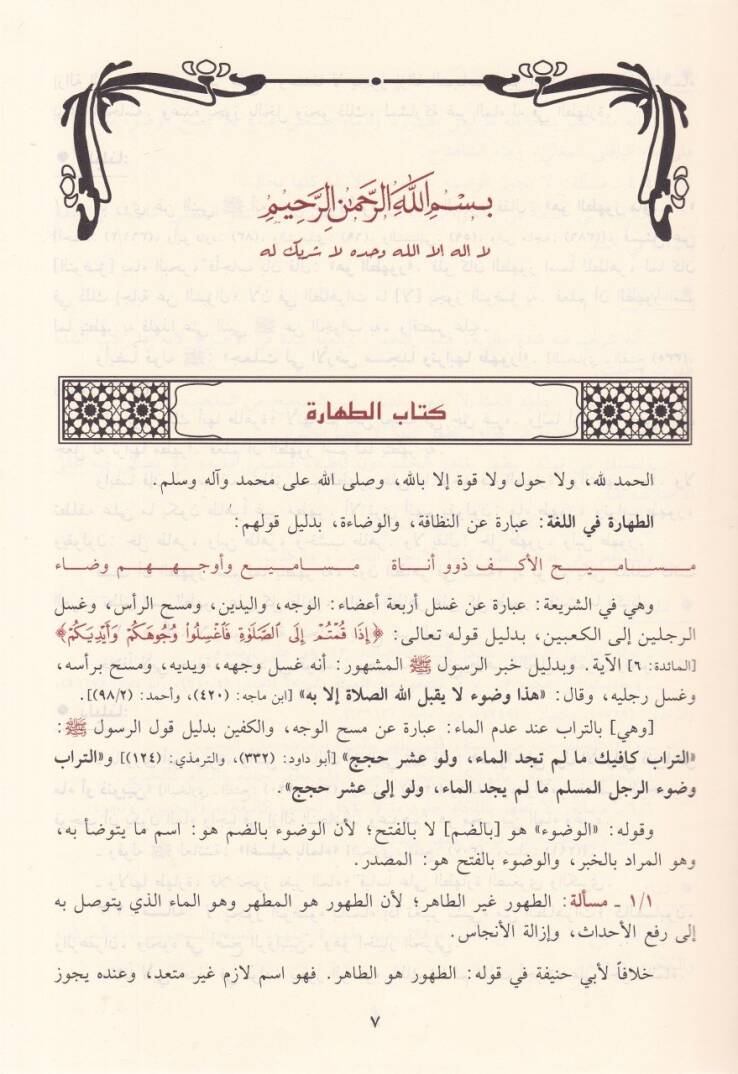 بِسْمِ اللَّهِ الرَّحْمَٰنِ الرَّحِيمِ
لا اله الا الله وحده لا شريك له
كتاب الطهارة
الحمد لله، ولا حول ولا قوة إلا بالله، وصلى الله على محمد وآله وسلم.
الطهارة في اللغة: عبارة عن النظافة، والوضاءة، بدليل قولهم:
مساميح الأكف ذوو أناة مساميع وأوجههم وضاء
وهي في الشريعة: عبارة عن غسل أربعة أعضاء: الوجه، واليدين، ومسح الرأس، وغسل
الرجلين إلى الكعبين، بدليل قوله تعالى: ﴿إِذَا قُمْتُمْ إِلَى الصَّلَوٰةِ فَاغْسِلُوا۟ وُجُوهَكُمْ وَأَيْدِيَكُمْ﴾
[المائدة: ٦] الآية. وبدليل خبر الرسول ﷺ المشهور: أنه غسل وجهه، ويديه، ومسح برأسه،
وغسل رجليه، وقال: «هذا وضوء لا يقبل الله الصلاة إلا به» [ابن ماجه: (٤٢٠)، وأحمد: (٩٨/٢)].
[وهي] بالتراب عند عدم الماء: عبارة عن مسح الوجه، والكفين بدليل قول الرسول ﷺ:
«التراب كافيك ما لم تجد الماء، ولو عشر حجج» [أبو داود: (٣٣٢)، والترمذي: (١٢٤)] و«التراب
وضوء الرجل المسلم ما لم يجد الماء، ولو إلى عشر حجج».
وقوله: «الوضوء» هو [بالضم] لا بالفتح؛ لأن الوضوء بالضم هو: اسم ما يتوضأ به،
وهو المراد بالخبر، والوضوء بالفتح هو: المصدر.
١/١ ـ مسألة: الطهور غير الطاهر؛ لأن الطهور هو المطهر وهو الماء الذي يتوصل به
إلى رفع الأحداث، وإزالة الأنجاس.
خلافاً لأبي حنيفة في قوله: الطهور هو الطاهر. فهو اسم لازم غير متعد، وعنده يجوز
٧